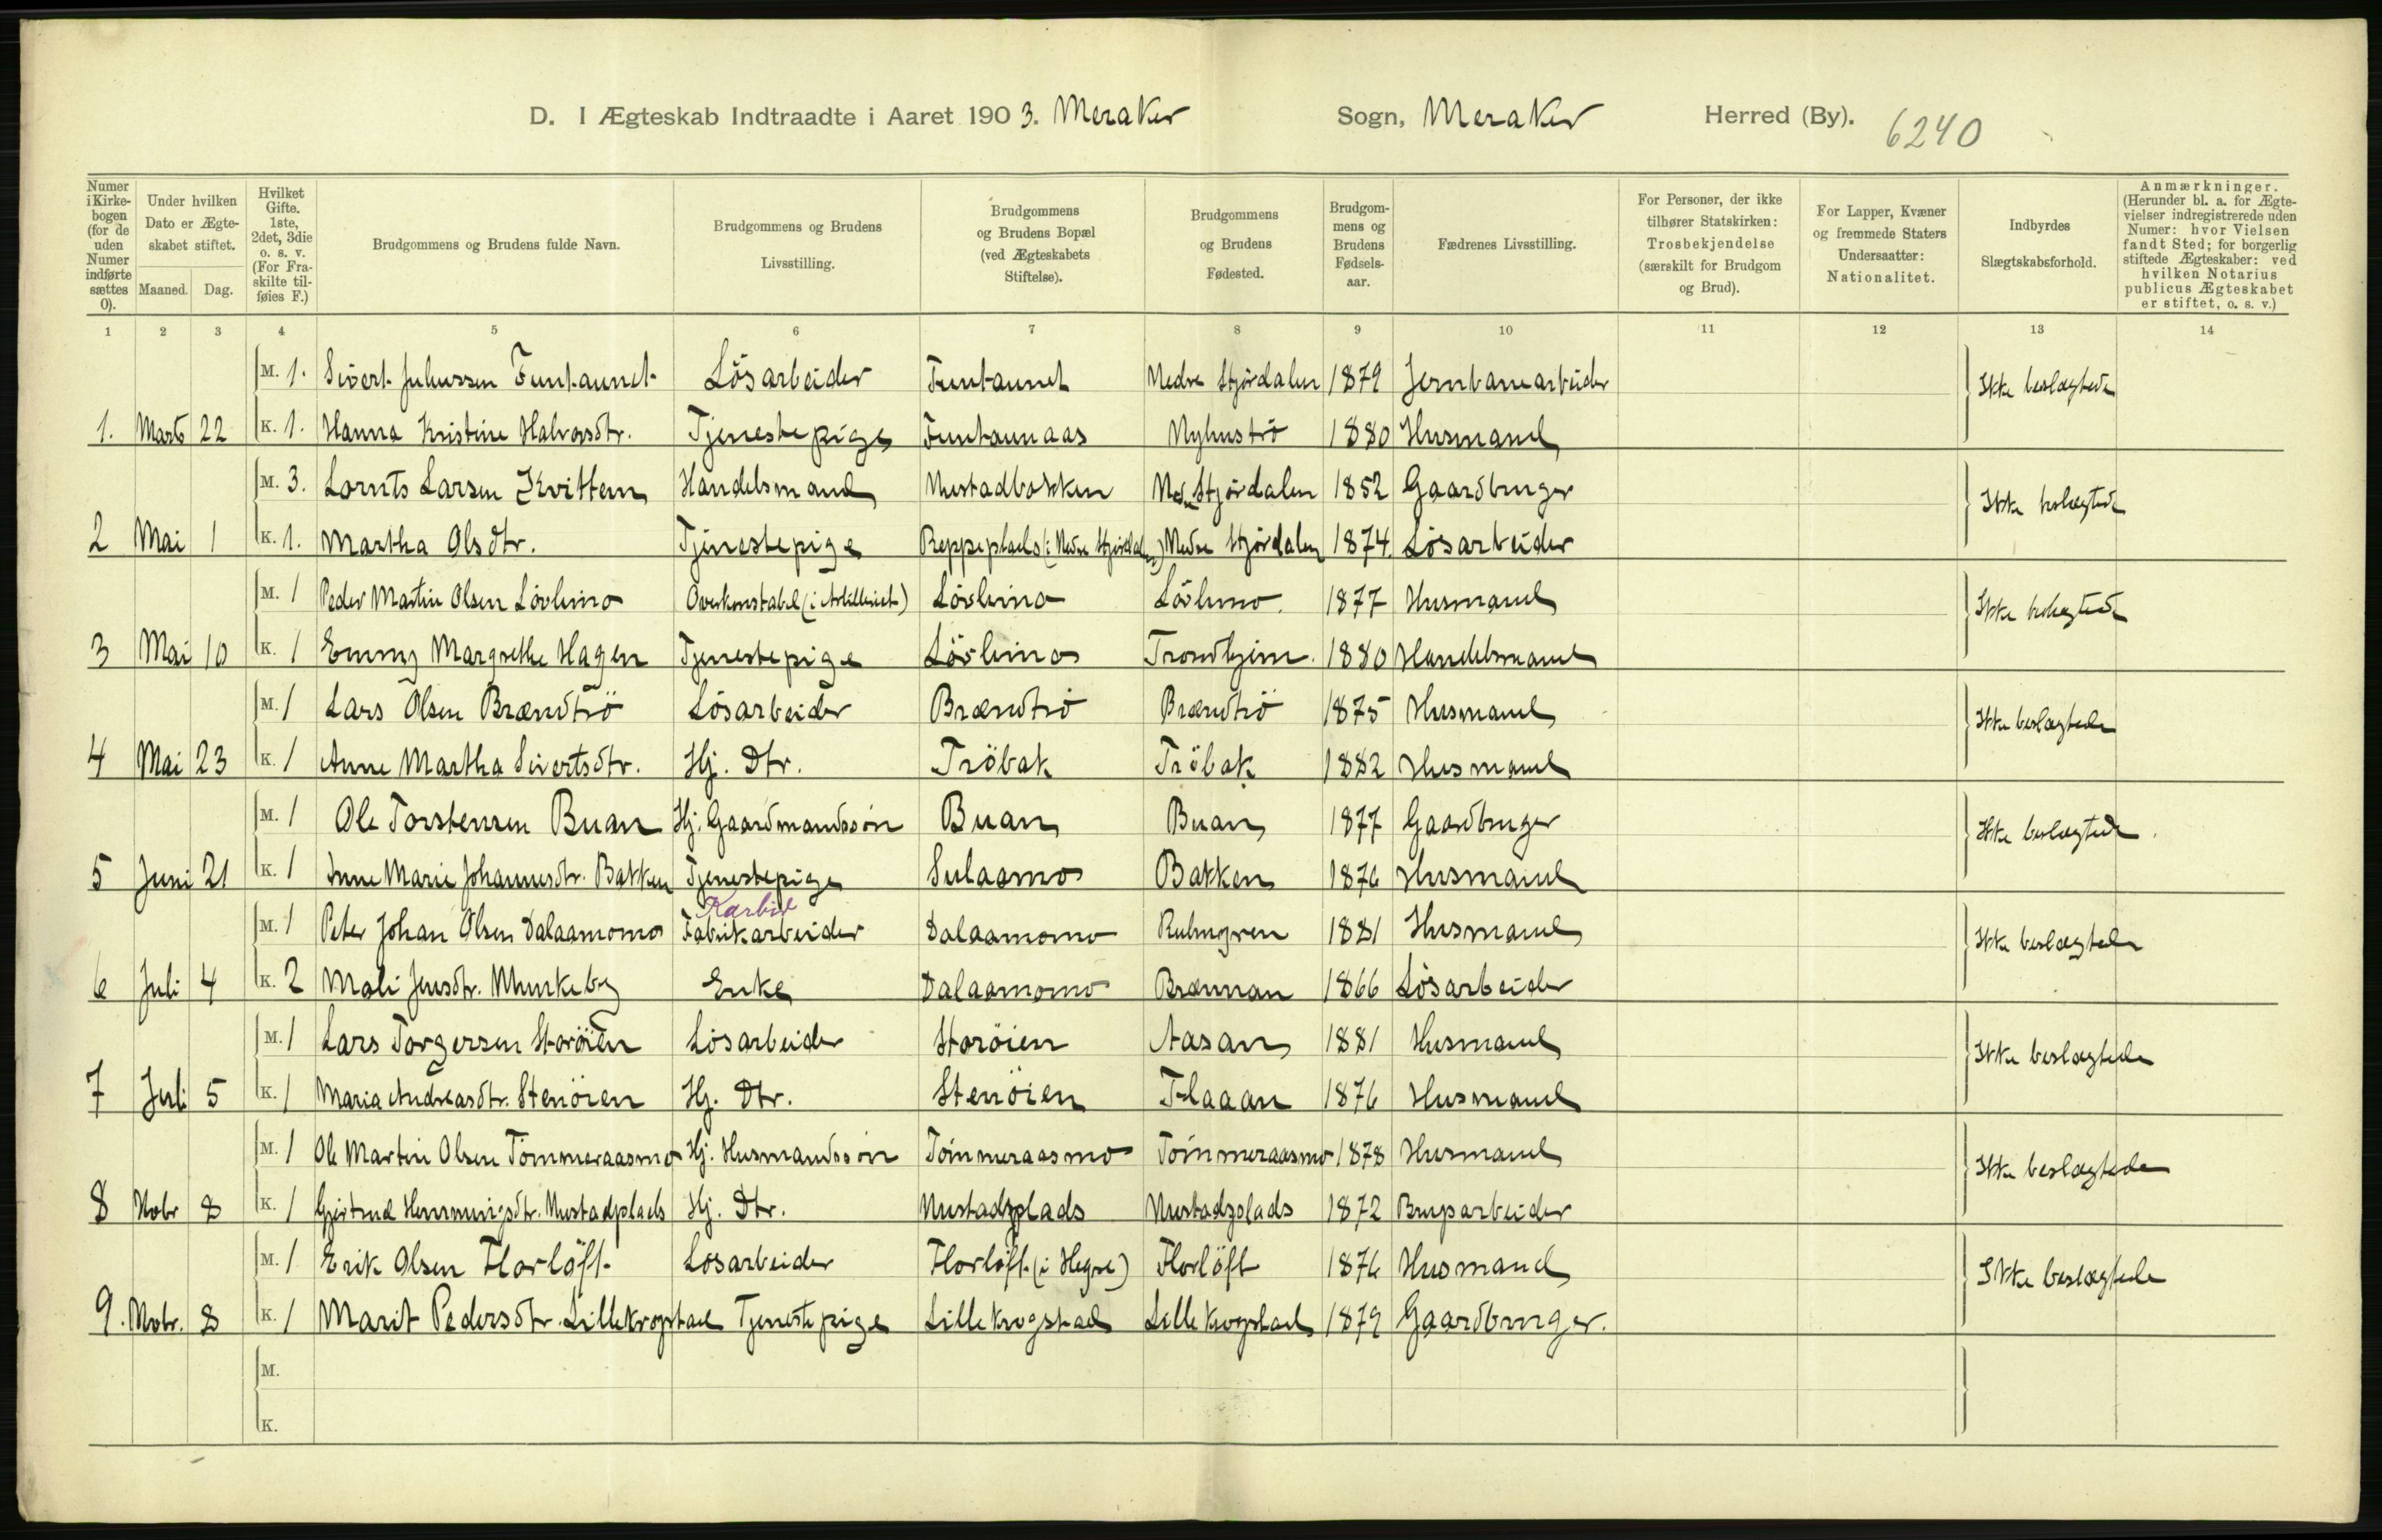 D. I Ægteskab Indtraadte i Aaret 1903. Meraker Sogn, Meraker Herred (By). 6240
Numer i Kirkebogen (for de uden Numer indførte sættes 0).
Under hvilken Dato er Ægteskabet stiftet.
Maaned. Dag.
Hvilket Gifte. 1ste, 2det, 3die o. s. v. (For Fraskilte tilføies F.)
Brudgommens og Brudens fulde Navn.
Brudgommens og Brudens Livsstilling.
Brudgommens og Brudens Bopæl (ved Ægteskabets Stiftelse).
Brudgommens og Brudens Fødested.
Brudgommens og Brudens Fødselsaar.
Fædrenes Livsstilling.
For Personer, der ikke tilhører Statskirken: Trosbekjendelse (særskilt for Brudgom og Brud).
For Lapper, Kvæner og fremmede Staters Undersaatter: Nationalitet.
Indbyrdes Slægtskabsforhold.
Anmærkninger. (Herunder bl. a. for Ægtevielser indregistrerede uden Numer: hvor Vielsen fandt Sted; for borgerlig stiftede Ægteskaber: ved hvilken Notarius publicus Ægteskabet er stiftet, o. s. v.)
1 2 3 4 5 6 7 8 9 10 11 12 13 14
M. 1. Sivert Juliussen Funtaunet Lösarbeider Funtaunet Nedre Stjördalen 1879 Jernbanearbeider Ikke beslægtede
1. Marts 22 K. 1. Hanna Kristine Halvorsdtr. Tjenestepige Funtaunaas Nyhuströ 1880 Husmand
M. 3. Lornts Larsen Kvittem Handelsmand Mustadbakken Ned. Stjördalen 1852 Gaardbruger Ikke beslægtede
2 Mai 1 K. 1. Martha Olsdtr. Tjenestepige Reppeplads (i Nedre Stjördalen) Nedre Stjördalen 1874 Lösarbeider
M. 1 Peder Martin Olsen Lövlimo Overkonstabel (i Artilleriet) Lövlimo Lövlimo. 1877 Husmand Ikke beslægtede
3 Mai 10 K. 1 Emmy Margrethe Hagen Tjenestepige Lövlimo Trondhjem. 1880 Handelsmand
M. 1 Lars Olsen Brændtrö Lösarbeider Brændtrö Brændtrö 1875 Husmand Ikke beslægtede
4 Mai 23 K. 1 Anne Martha Sivertsdtr. Hj. Dtr. Tröbak Tröbak 1882 Husmand
M. 1 Ole Torstensen Buan Hj. Gaardmandssön Buan Buan 1877 Gaardbruger Ikke beslægtede
5 Juni 21 K. 1 Anne Marie Johannesdtr. Bakken Tjenestepige Sulaamo Bakken 1876 Husmand
Karbid
M. 1 Peter Johan Olsen Dalaamomo Fabrikarbeider Dalaamomo 1881 Husmand Ikke beslægtede
6 Juli 4 K. 2 Mali Jensdtr. Munkeby Enke Dalaamomo Brænnan 1866 Lösarbeider
M. 1 Lars Torgersen Storöien Lösarbeider Storöien Aasan 1881 Husmand Ikke beslægtede
7 Juli 5 K. 1 Maria Andreasdtr. Stenöien Hj. Dtr. Stenöien Flaaan 1876 Husmand
M. 1 Ole Martin Olsen Tömmeraasmo Hj. Husmandssön Tömmeraasmo Tömmeraasmo 1878 Husmand Ikke beslægtede
8 Novbr 8 K. 1 Gjertrud Henningsdtr. Mustadplads Hj. Dtr. Mustadplads Mustadplads 1872 Brugsarbeider
M. 1 Erik Olsen Florlöft Lösarbeider Florlöft (i Hegre) Florlöft 1876 Husmand Ikke beslægtede
9. Novbr. 8 K. 1 Marit Pedersdtr. Lillekrogstad Tjenestepige Lillekrogstad Lillekrogstad 1879 Gaardbruger.
M.
K.